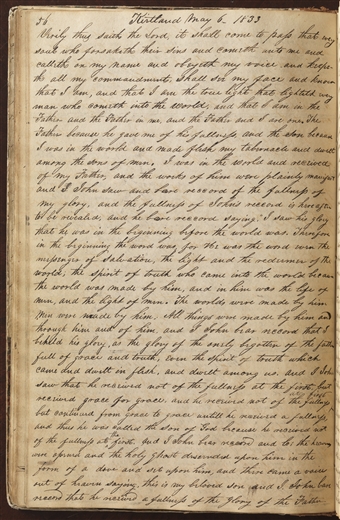 56 Kirtland May 6. 1833
Verily thus saith the Lord, it shall come to pass that every
soul who forsaketh their sins and cometh unto me and
calleth on my name and obeyeth my voice and keepe-
th all my commandments, shall see my face and know
that I am, and that I am the true light that lighteth every
man who cometh into the world, and that I am in the
Father and the Father in me, and the Father and I are one The
Father because he gave me of his fullness, and the son becaus
I was in the world and made flesh my tabernacle and dwelt
among the sons of men, I was in the world and received
of my Father, and the works of him were plainly manifest
and I John saw and bare reccord of the fullness of
my glory, and the fullness of Johns reccord is hereafter
to be revealed, and he bare reccord saying, I saw his glory
that he was in the beginning before the world was. Therefore
in the beginning the word was, for he was the word even the
messenger of salvation, the light and the redeemer of the
world, the spirit of truth who came into the world becaus
the world was made by him, and in him was the life of
men, and the light of men. The worlds were made by him
Men were made by him, All things were made by him and
through him and of him, and I John bear reccord that I
beheld his glory, as the glory of the only begotten of the father
full of grace and truth, even the spirit of truth which
came and dwelt in flesh, and dwelt among us, and I John
saw that he received not of the fullness at the first, but
received grace for grace, and he received not of the fullness at first
but continued from grace to grace untill he received a fullness,
and thus he was called the Son of God because he received not
of the fullness at the first, and I John bear record and lo the heavens
were opened and the holy ghost descended upon him in the
form of a dove and set upon him, and there came a voice
out of heaven saying, this is my beloved son and I John bear
record that he received a fullness of the glory of the Father